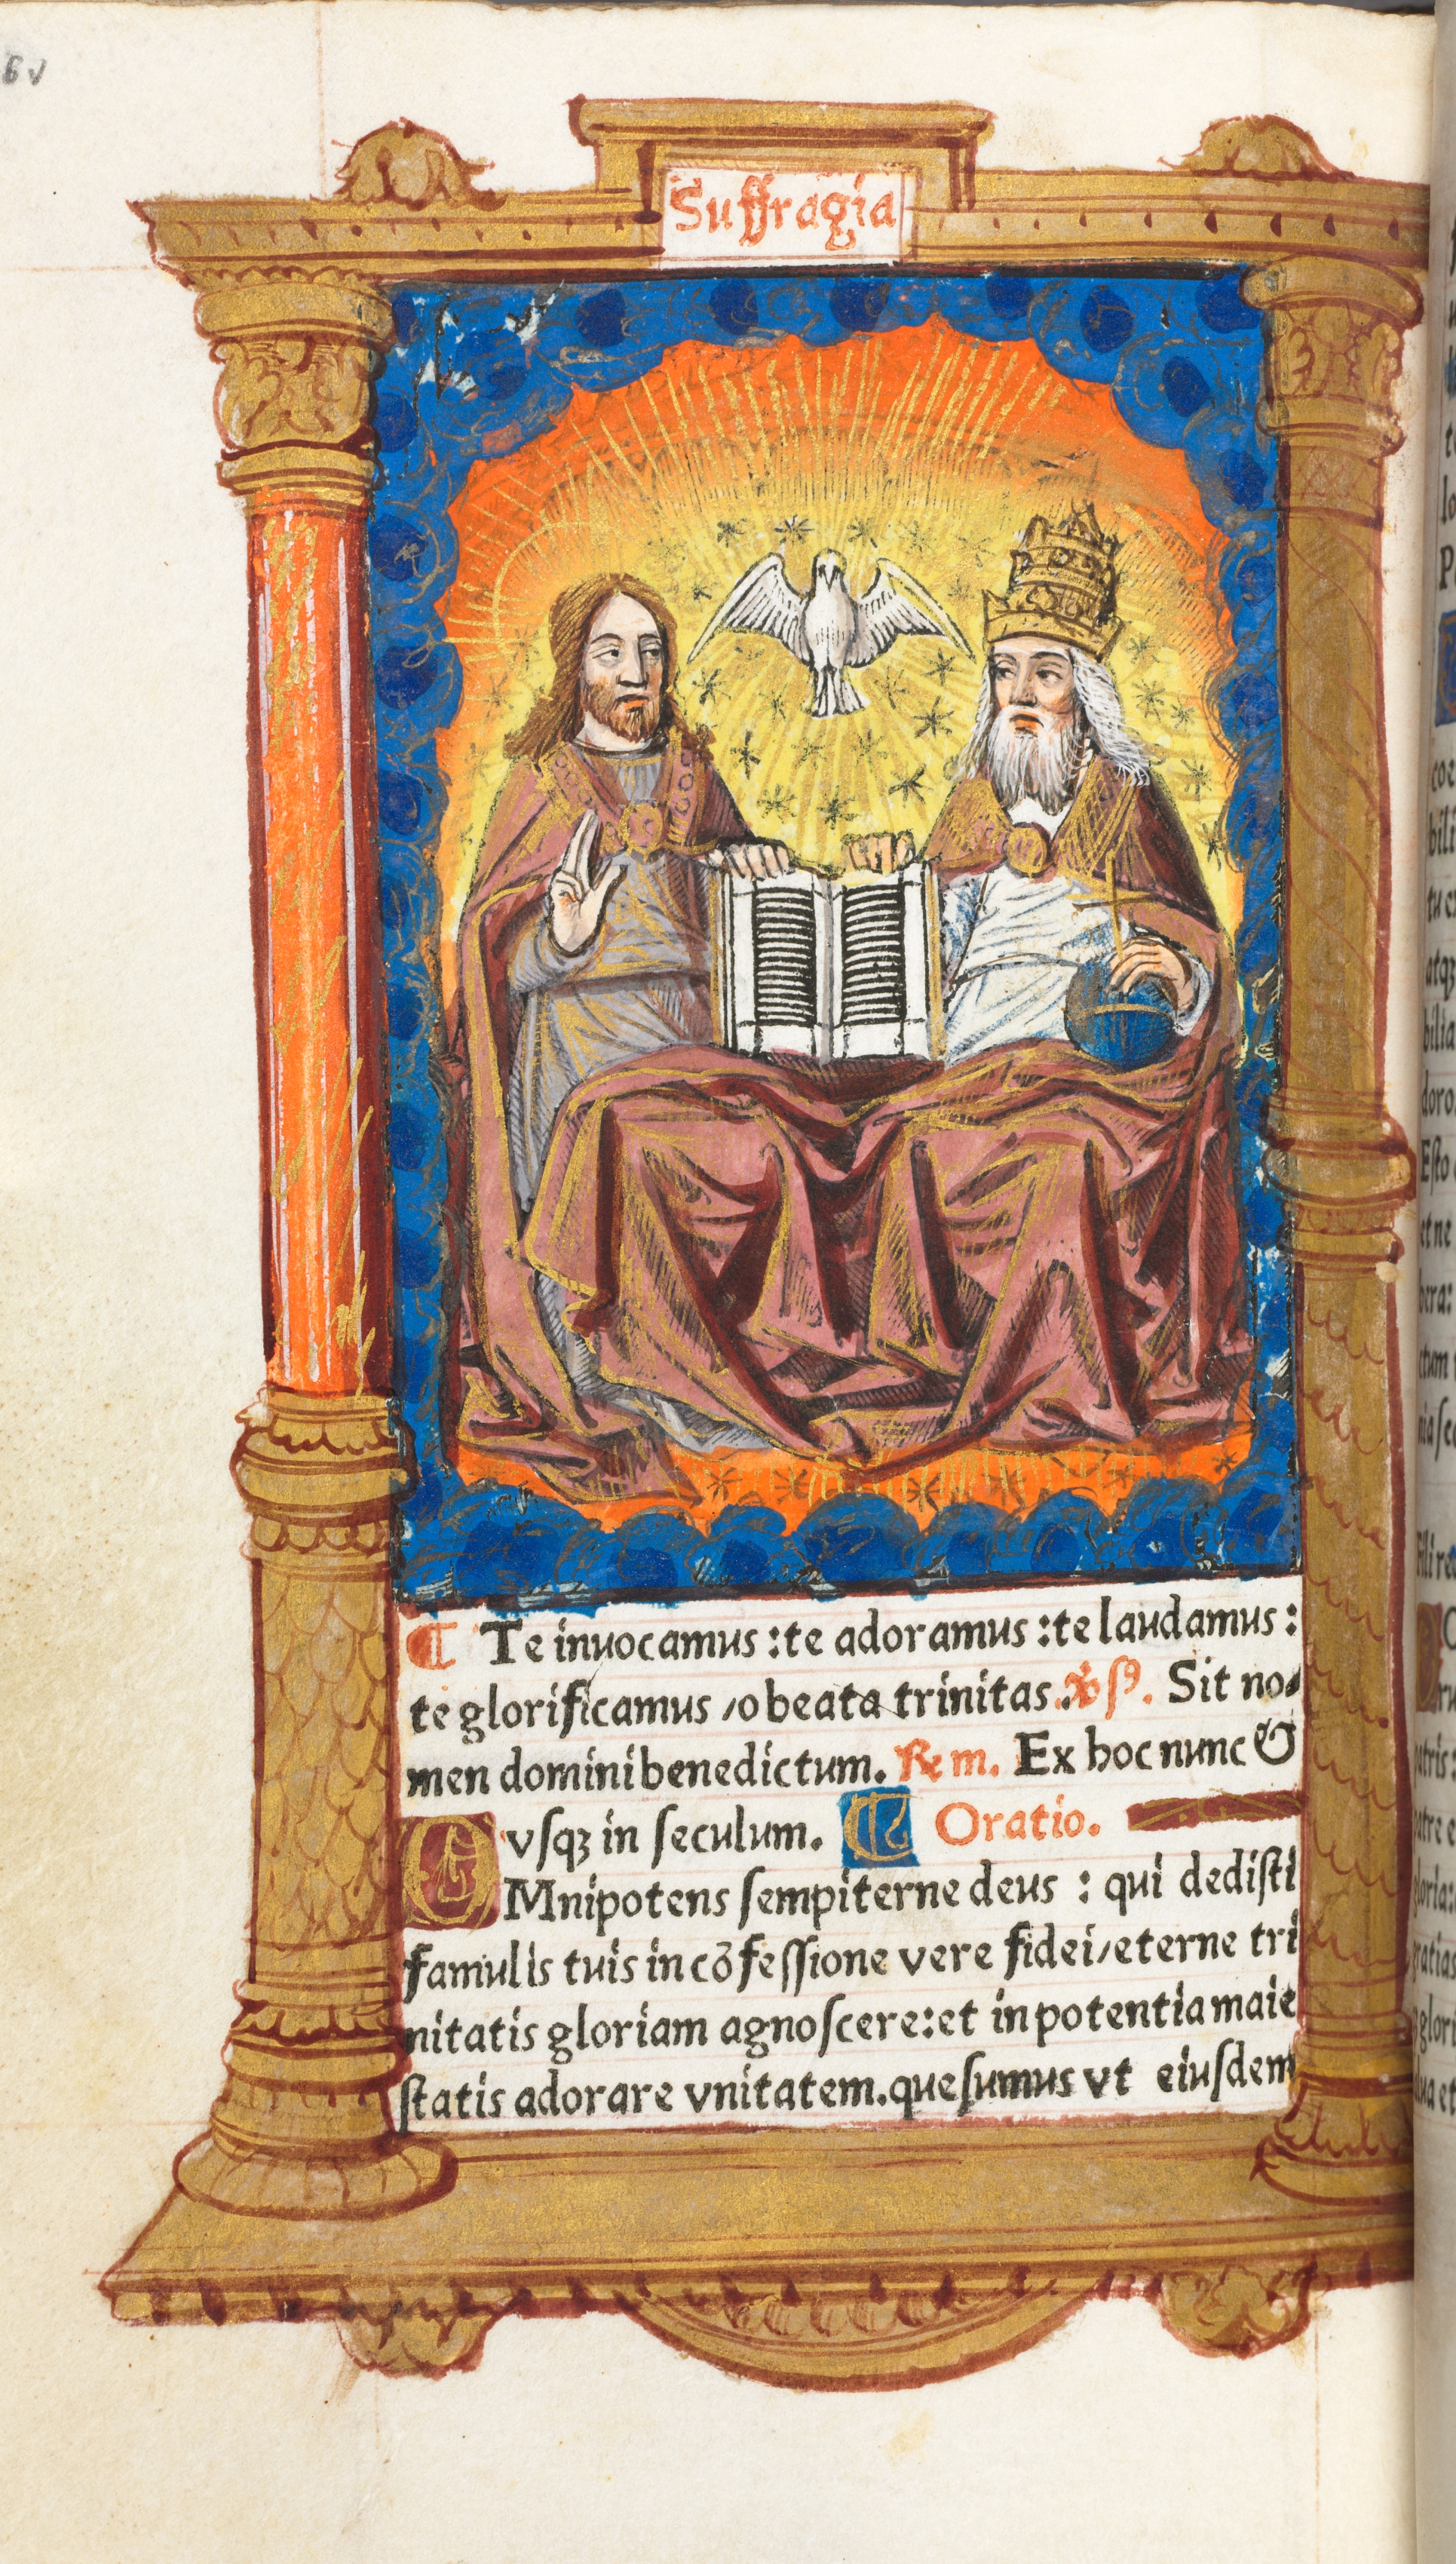 6v
Suffragia
¶ Te inuocamus : te adoramus : te laudamus :
te glorificamus / o beata trinitas. ℣ sꝰ. Sit no⸗
men domini benedictum. ℞ m. Ex hoc nunc &
vſqꝫ in ſeculum. ¶ Oratio.
OMnipotens ſempiterne deus : qui dediſti
famulis tuis in cõfeſſione vere fidei / eterne tri
nitatis gloriam agnoſcere : et in potentia maie
ſtatis adorare vnitatem. queſumus vt eiuſdem